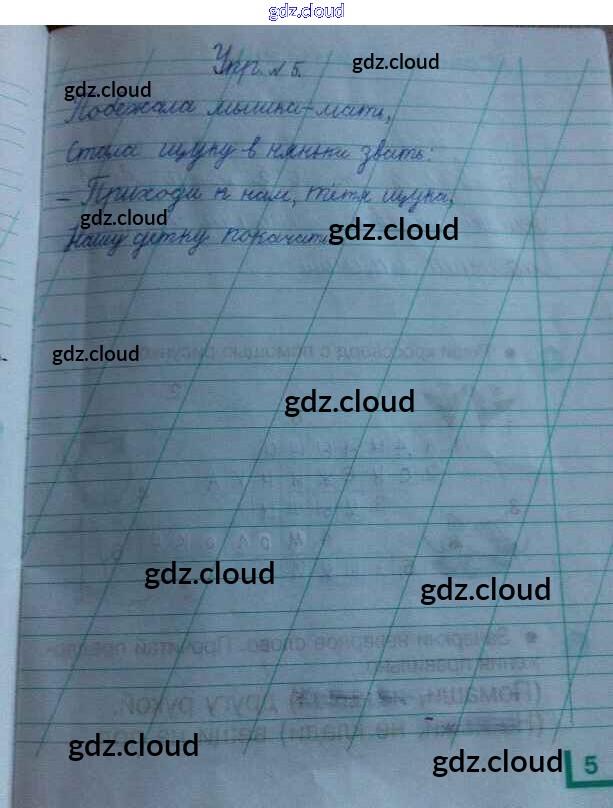 gdz.cloud
Упр. № 5.
gdz.cloud
gdz.cloud
Побежала мышка-мать,
Стала щуку в няньки звать:
- Приходи к нам, тётя щука,
gdz.cloud
Нашу детку покачать
gdz.cloud
gdz.cloud
gdz.cloud
gdz.cloud
gdz.cloud
gdz.cloud
gdz.cloud
5